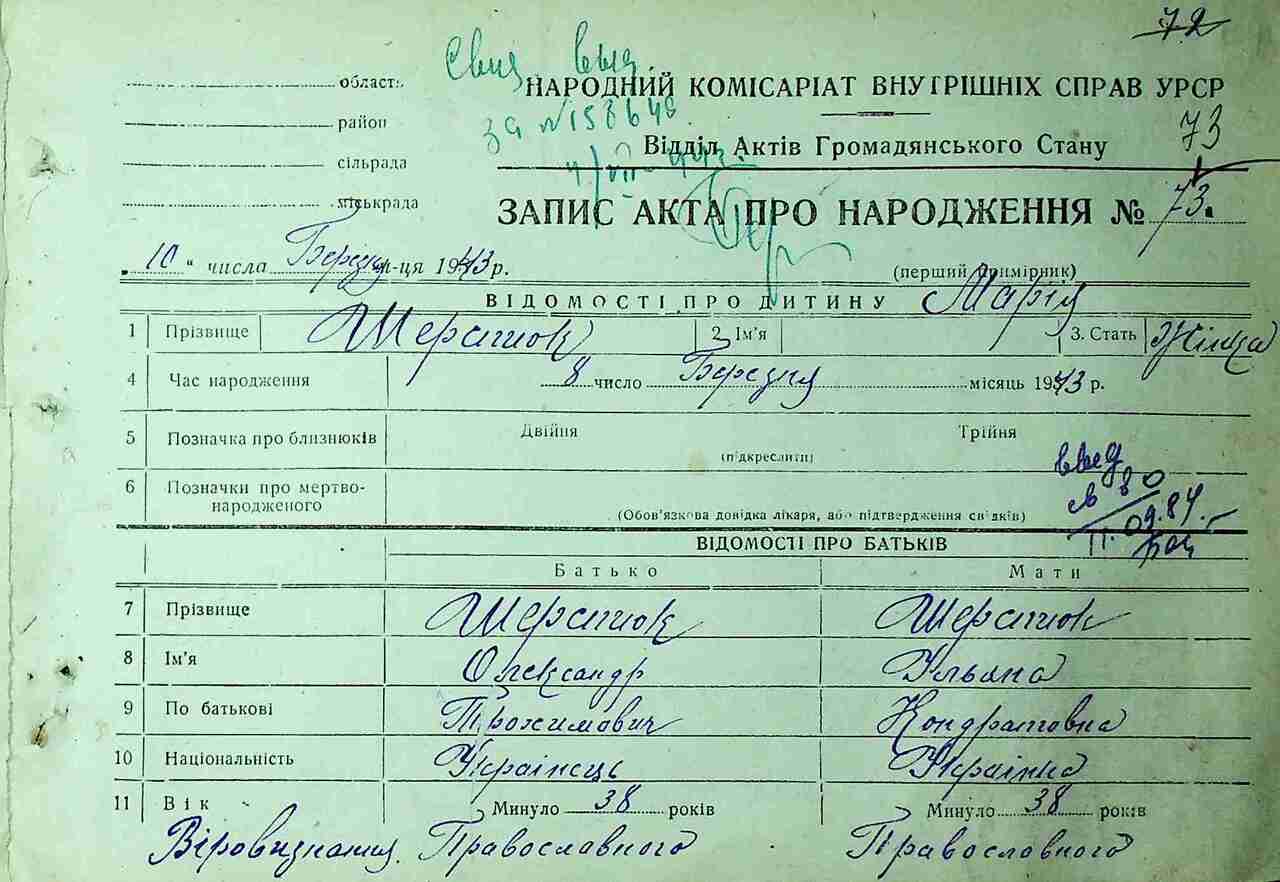 72
область
Свид выд.
НАРОДНИЙ КОМІСАРІАТ ВНУТРІШНІХ СПРАВ УРСР
район
за №158648
73
сільрада
Відділ Актів Громадянського Стану
міськрада
ЗАПИС АКТА ПРО НАРОДЖЕННЯ № 73.
„10“ числа Березня м-ця 1943 р.
(перший примірник)
ВІДОМОСТІ ПРО ДИТИНУ
1 Прізвище Шерамок 2. Ім'я Марія 3. Стать Жіноча
4 Час народження 8 число Березня місяць 1943 р.
5 Позначка про близнюків Двійня Трійня
(підкреслити)
выд
6 Позначки про мертво-
народженого
(Обов'язкова довідка лікаря, або підтвердження свідків)
11.09.84 г
ВІДОМОСТІ ПРО БАТЬКІВ
Батько Мати
7 Прізвище Шерамок Шерамок
8 Ім'я Олександр Ульяна
9 По батькові Трохимович Кондратовна
10 Національність Українець Українка
11 Вік Минуло 38 років Минуло 38 років
Віровизнання Православного Православного